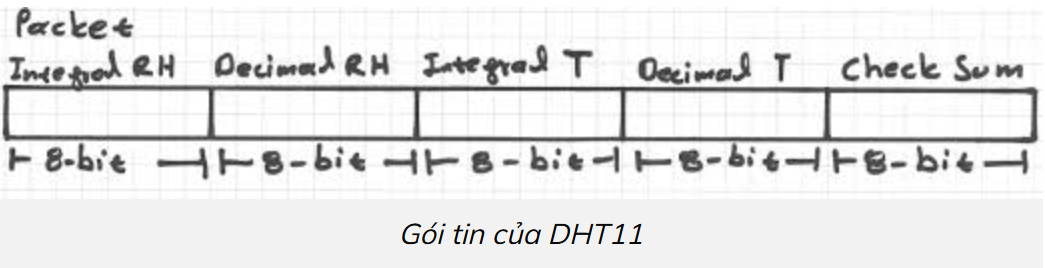 Packet
Integral RH Decimal RH Integral T Decimal T Check Sum
8-bit 8-bit 8-bit 8-bit 8-bit
Gói tin của DHT11